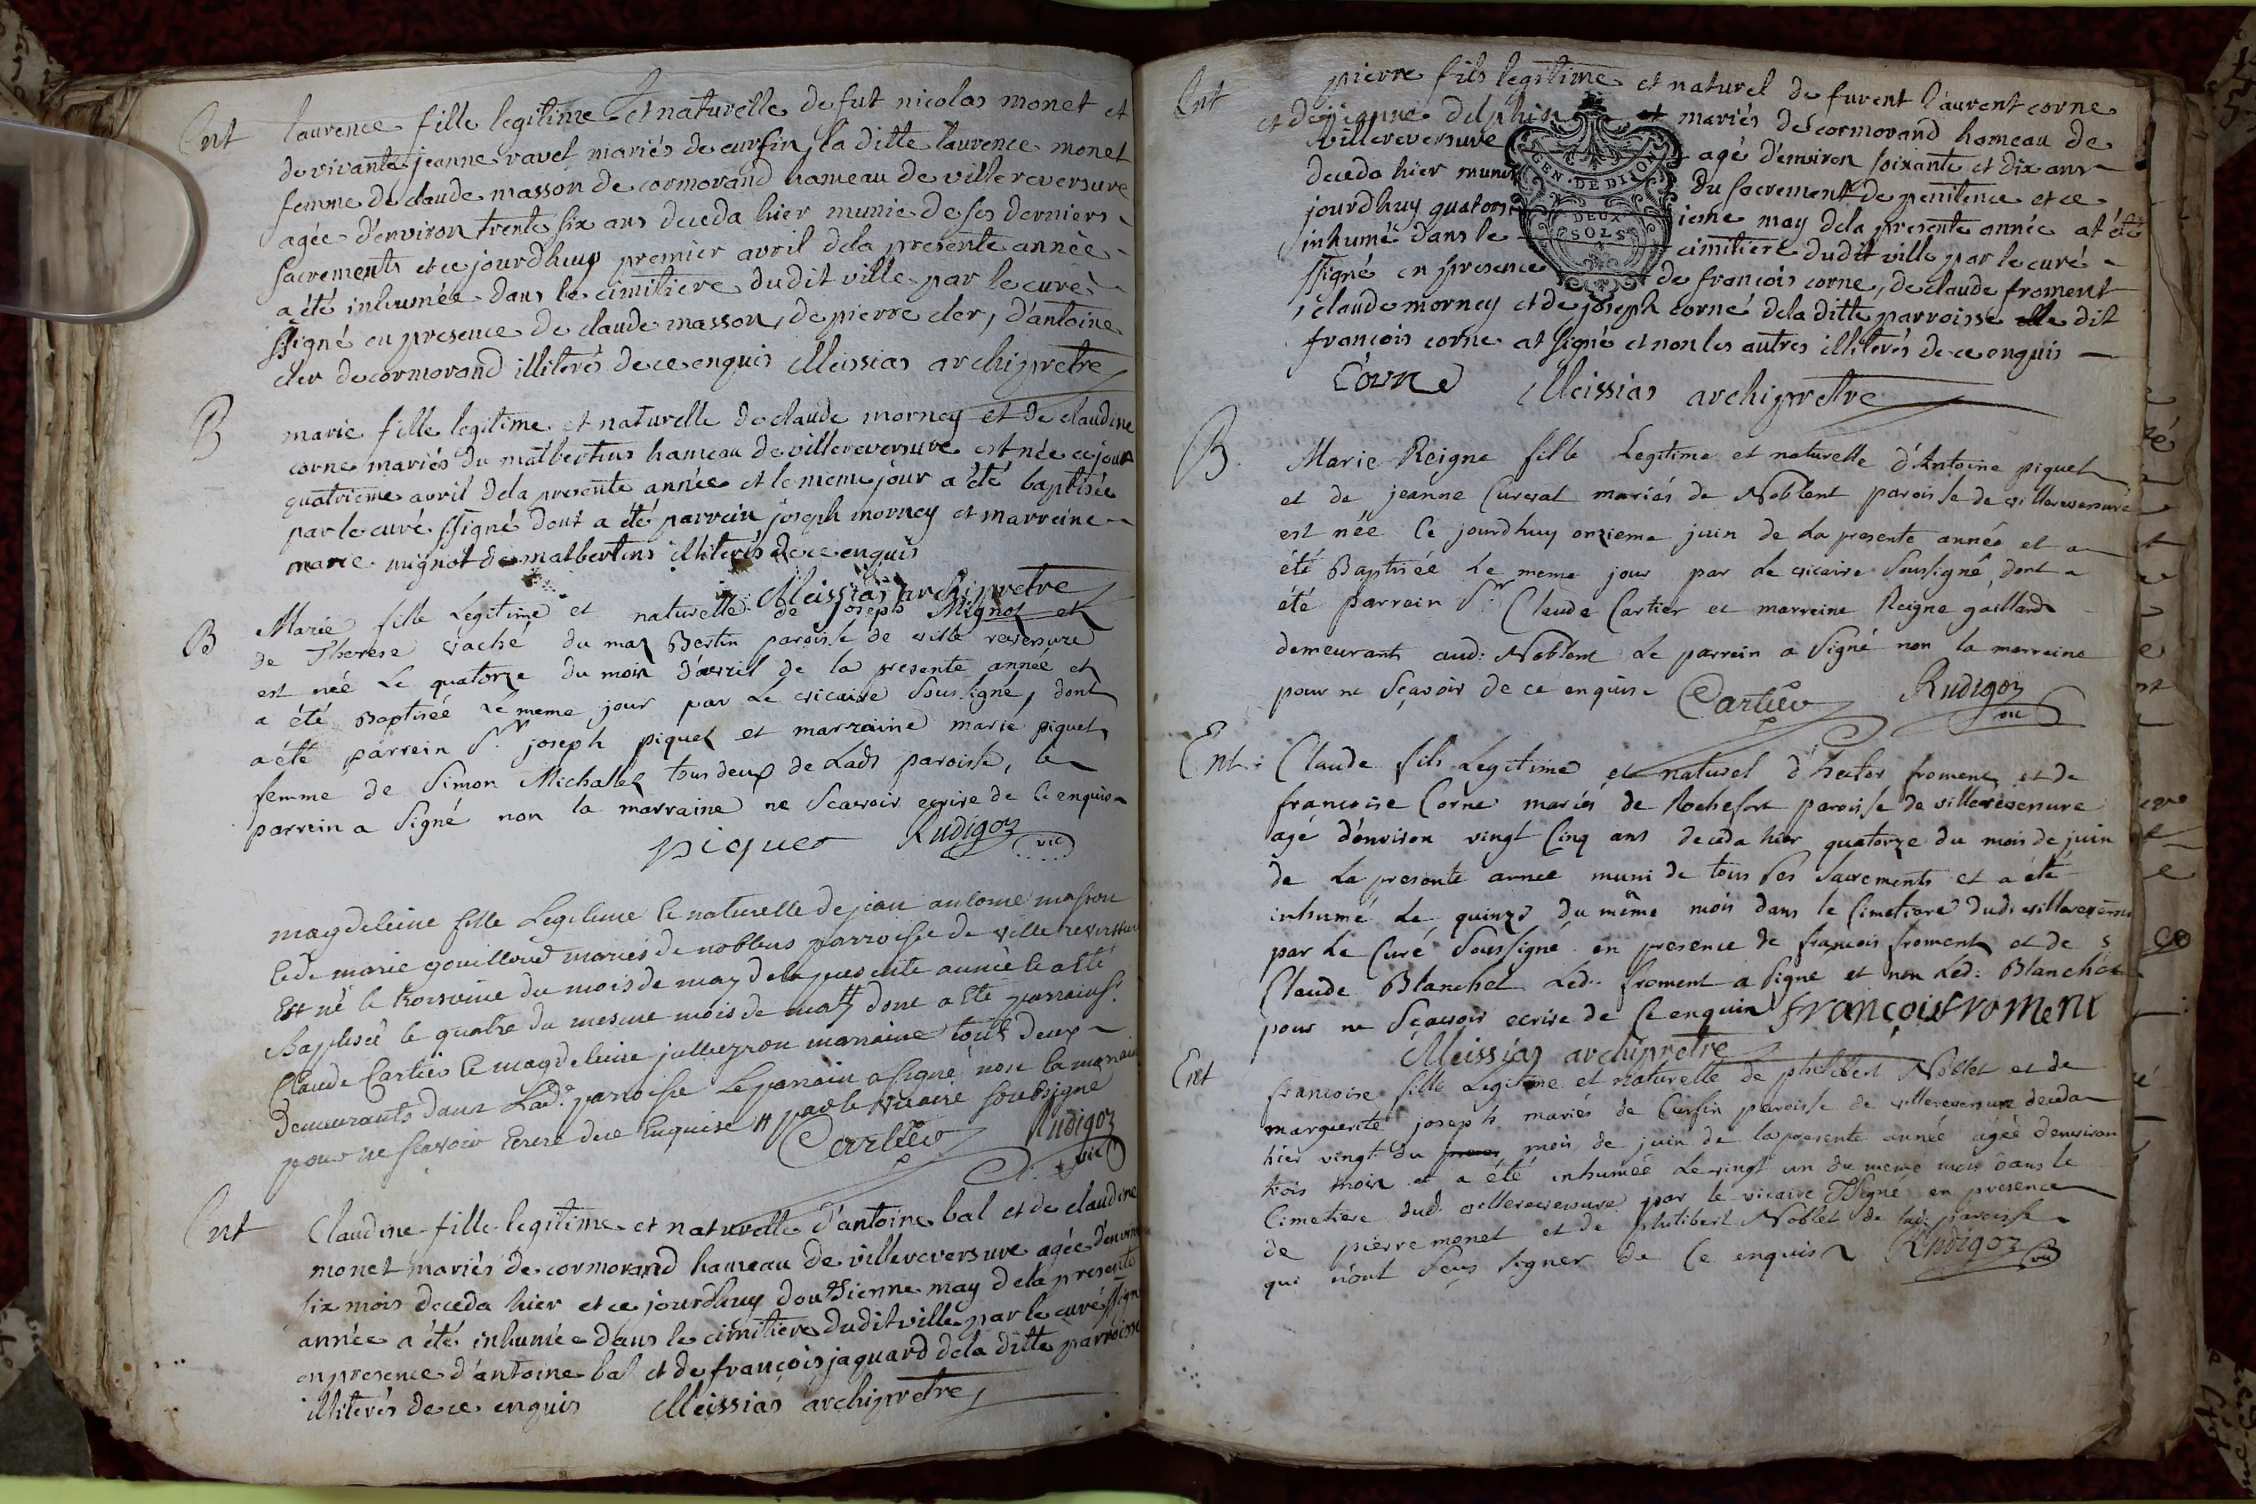 Ent
laurence fille legitime et naturelle de fut nicolas monet et
de vivante jeanne ravet mariés de cursin, la ditte laurence monet
femme de claude masson de cormorand hameau de villereversure
agée d'environ trente six ans deceda hier munie de ses derniers
sacrements et ce jourdhuy premier avril dela presente année
a été inhumée dans le cimitiere dudit ville par le curé
ssigné en presence de claude masson, de pierre cler, d'antoine
cler de cormorand illiterés de ce enquis Meissias archipretre
B
marie fille legitime et naturelle de claude morney et de claudine
corne mariés du malbertins hameau de villereversure est née ce jour
quatrieme avril dela presente année et le meme jour a été baptisée
par le curé ssigné dont a été parrein joseph morney et marreine
marie mignot de malbertins illiterés de ce enquis
Meissias archipretre
B
Marie fille Legitime et naturelle de joseph Mignot et
de Therese vaché du maz Bertin paroisse de ville reversure
est née Le quatorze du mois d'avril de la presente année et
a été Baptisée Le meme jour par Le vicaire Soussigné, dont
a été parrein Sr joseph piquet et marraine marie piquet
femme de Simon Michallet tous deux de Ladt paroisse, le
parrein a Signé non la marraine ne Scavoir ecrire de ce enquise
piquet Rudigoz vic
magdeleine fille Legitime et naturelle de jean antoine masson
et de marie gouilloud mariés de noblens parroisse de ville reversure
Est né le troisieme du mois de may de la presente année et a Eté
Baptisée le quatre du mesme mois de may dont a Eté parrain sr
Claude Cartier et magdeleine jullieron marraine touts deux
Demeurants dans Lade parroisse Le parrain a signé non la marraine
pour ne scavoir Ecrire de ce Enquise par le vicaire soubsigné
Cartier Rudigoz vic
Ent
Claudine fille legitime et naturelle d'antoine bal et de claudine
monet mariés de cormorand hameau de villereversure agée d'environ
six mois deceda hier et ce jourdhuy douzieme may dela presente
année a été inhumée dans le cimitiere dudit ville par le curé ssigné
en presence d'antoine bal et de françois jaquard dela ditte parroisse
illiterés de ce enquis Meissias archipretre
Ent
pierre fils legitime et naturel de furent laurent corne
et de jeanne delphin et mariés de cormorand hameau de
villereversure agé d'environ soixante et dix ans
deceda hier muni du sacrement de penitence et ce
jourdhuy quatorzieme may dela presente année at été
inhumé dans le cimitiere dudit ville par le curé
ssigné en presence de françois corne, de claude froment
, claude morney et de joseph corne dela ditte parroisse le dit
françois corne at signé et non les autres illiterés de ce enquis
GEN·DE DIJON
DEUX
SOLS
Corne Meissias archipretre
B.
Marie Reigne fille Legitime et naturelle d'Antoine piquet
et de jeanne Curval mariés de Noblent paroisse de villereversure
est née Ce jourdhuy onzieme juin de La presente année et a
été Baptisée Le meme jour par Le vicaire Soussigné, dont a
été parrein Sr Claude Cartier et marreine Reigne gaillard
demeurants aud: Noblent Le parrein a Signé non la marreine
pour ne Sçavoir de ce enquise Cartier Rudigoz vic
Ent:
Claude fils Legitime et naturel d'hector froment et de
francoise Corne mariés de Rochefort paroisse de villereversure
agé d'environ vingt Cinq ans deceda hier quatorze du mois de juin
de La presente année muni de tous ses Sacrements et a été
inhumé Le quinze du même mois dans le Cimetiere dudt villereversure
par Le Curé Soussigné en presence de françois froment et de
Claude Blanchet Led: froment a signé et non Led: Blanchet
pour ne Sçavoir ecrire de Ce enquis françois froment
Meissias archipretre
Ent
francoise fille Legitime et naturelle de philibert Noblet et de
marguerite joseph mariés de Cursin paroisse de villereversure deceda
hier vingt du mois de juin de la presente année agée d'environ
trois mois et a été inhumée Le vingt un du meme mois dans le
Cimetiere dudt villereversure par le vicaire ssigné en presence
de pierre monet et de philibert Noblet de lad: paroisse
qui n'ont Sçus Signer de Ce enquis Rudigoz vic